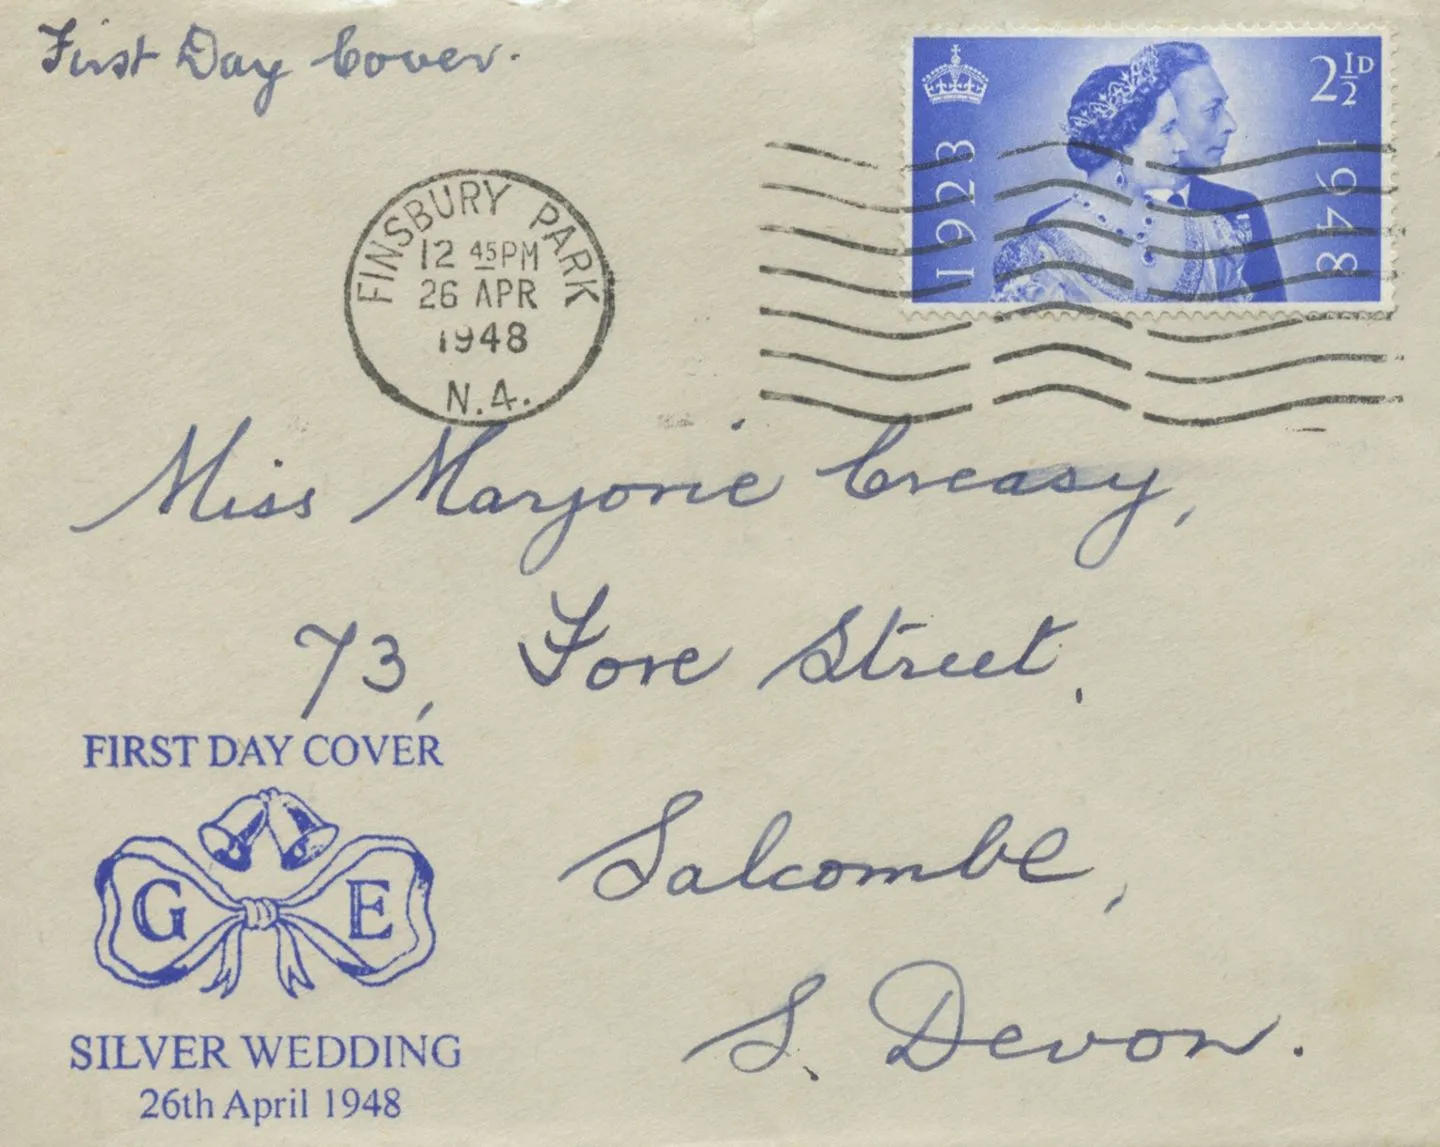 First Day Cover.
2½D
1923
1948
FINSBURY PARK
12 45PM
26 APR
1948
N.4.
Miss Marjorie Creasy,
73, Fore Street.
Salcombe,
S. Devon.
FIRST DAY COVER
G E
SILVER WEDDING
26th April 1948